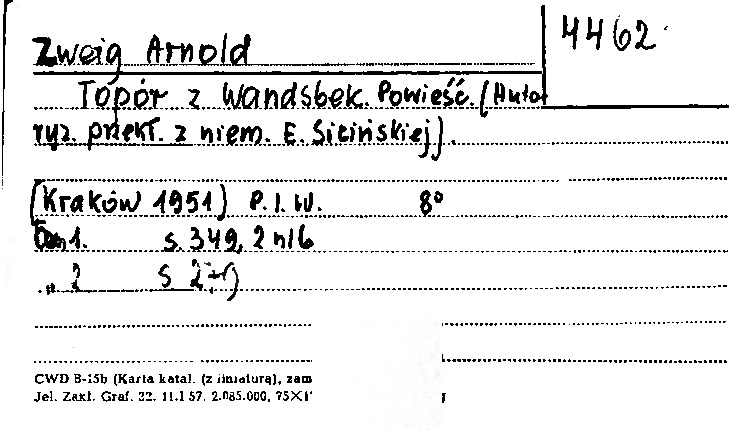 Zweig Arnold
4462
Topór z Wandsbek. Powieść. (Auto
ryz. przekł. z niem. E. Sicińskiej).
(Kraków 1951) P.I.W. 8°
Tom 1. s. 349, 2 nlb
„ 2 s
CWD B-15b (Karta katal. (z liniaturą), zam
Jel. Zakł. Graf. 22. 11.I 57. 2.085.000, 75X